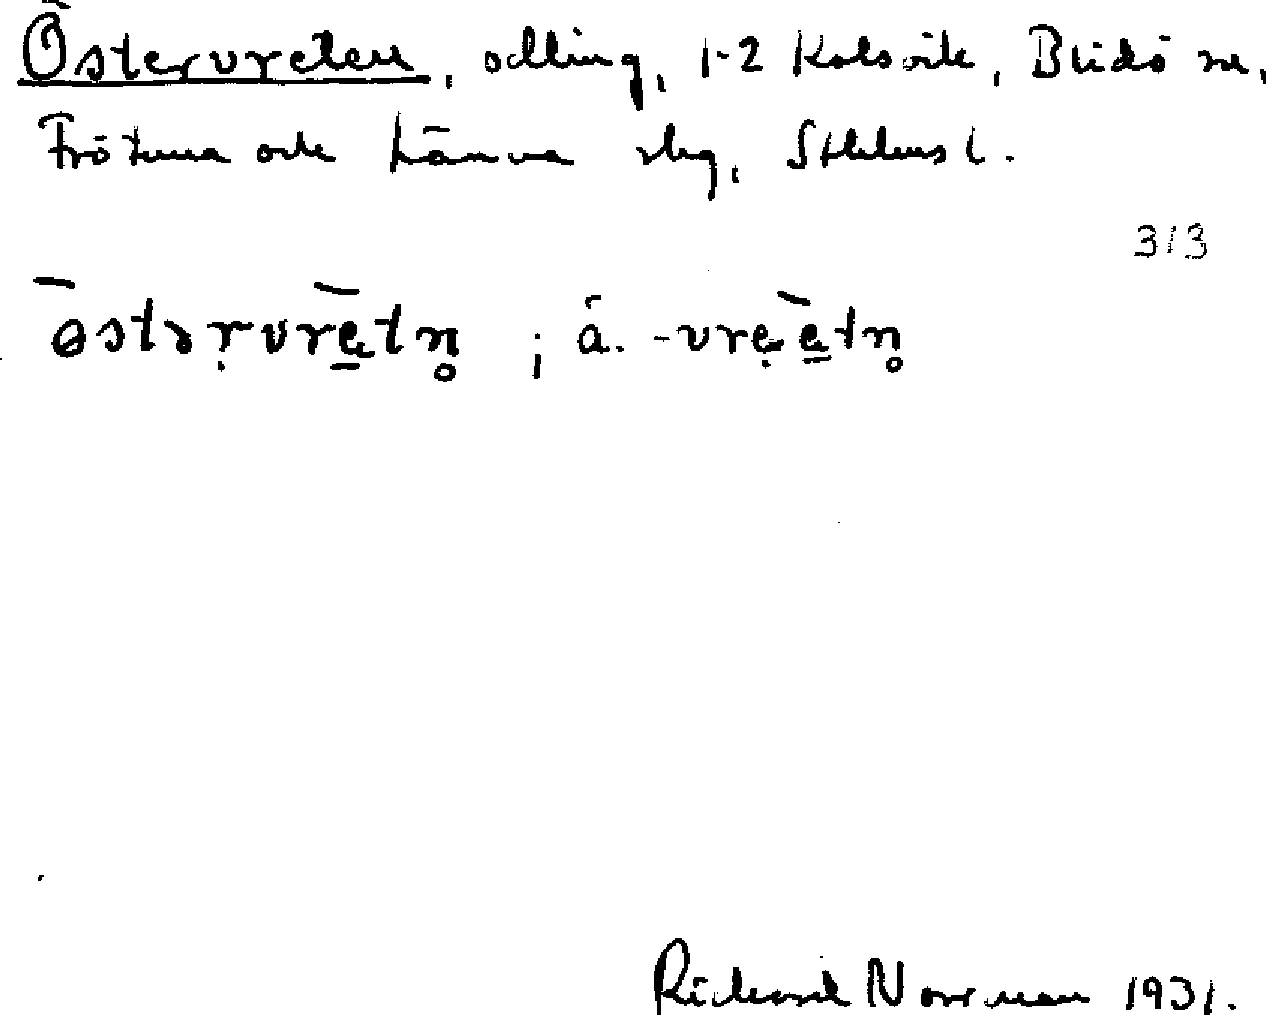 Östervreten, odling, 1-2 Kolsvik, Blidö sn,
Frötuna och Länna skg, Sthlms l.
313
östərvrētn̥ ; ä. -vreètn̥
Richard Norrman 1931.